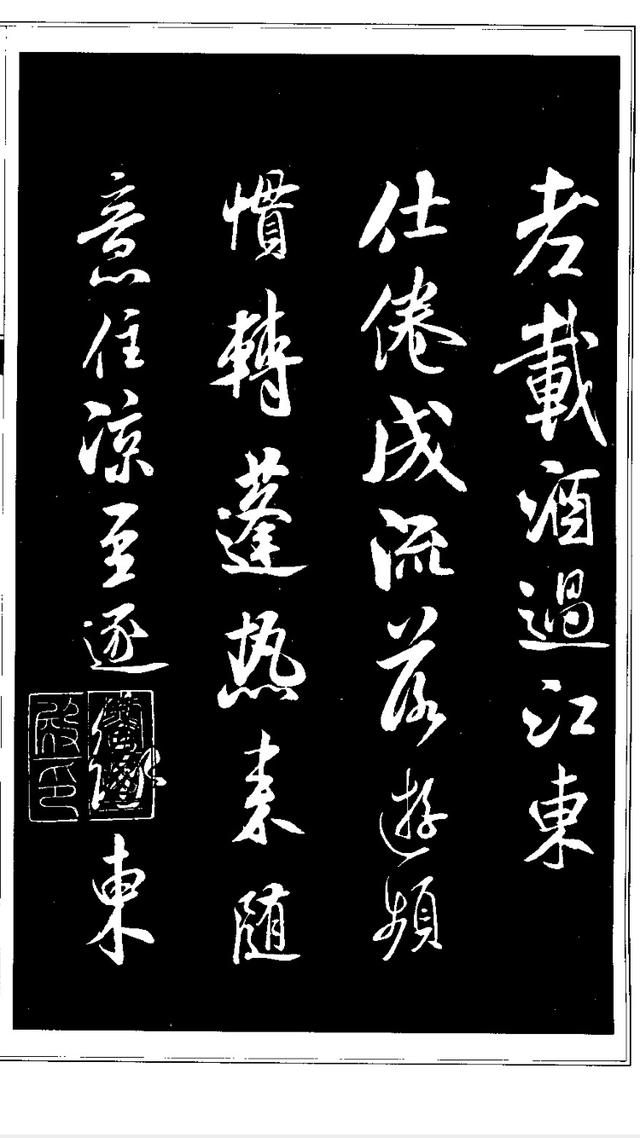 老載酒過江東
仕倦成流落遊頻
慣轉蓬热来随
意住涼至逐東